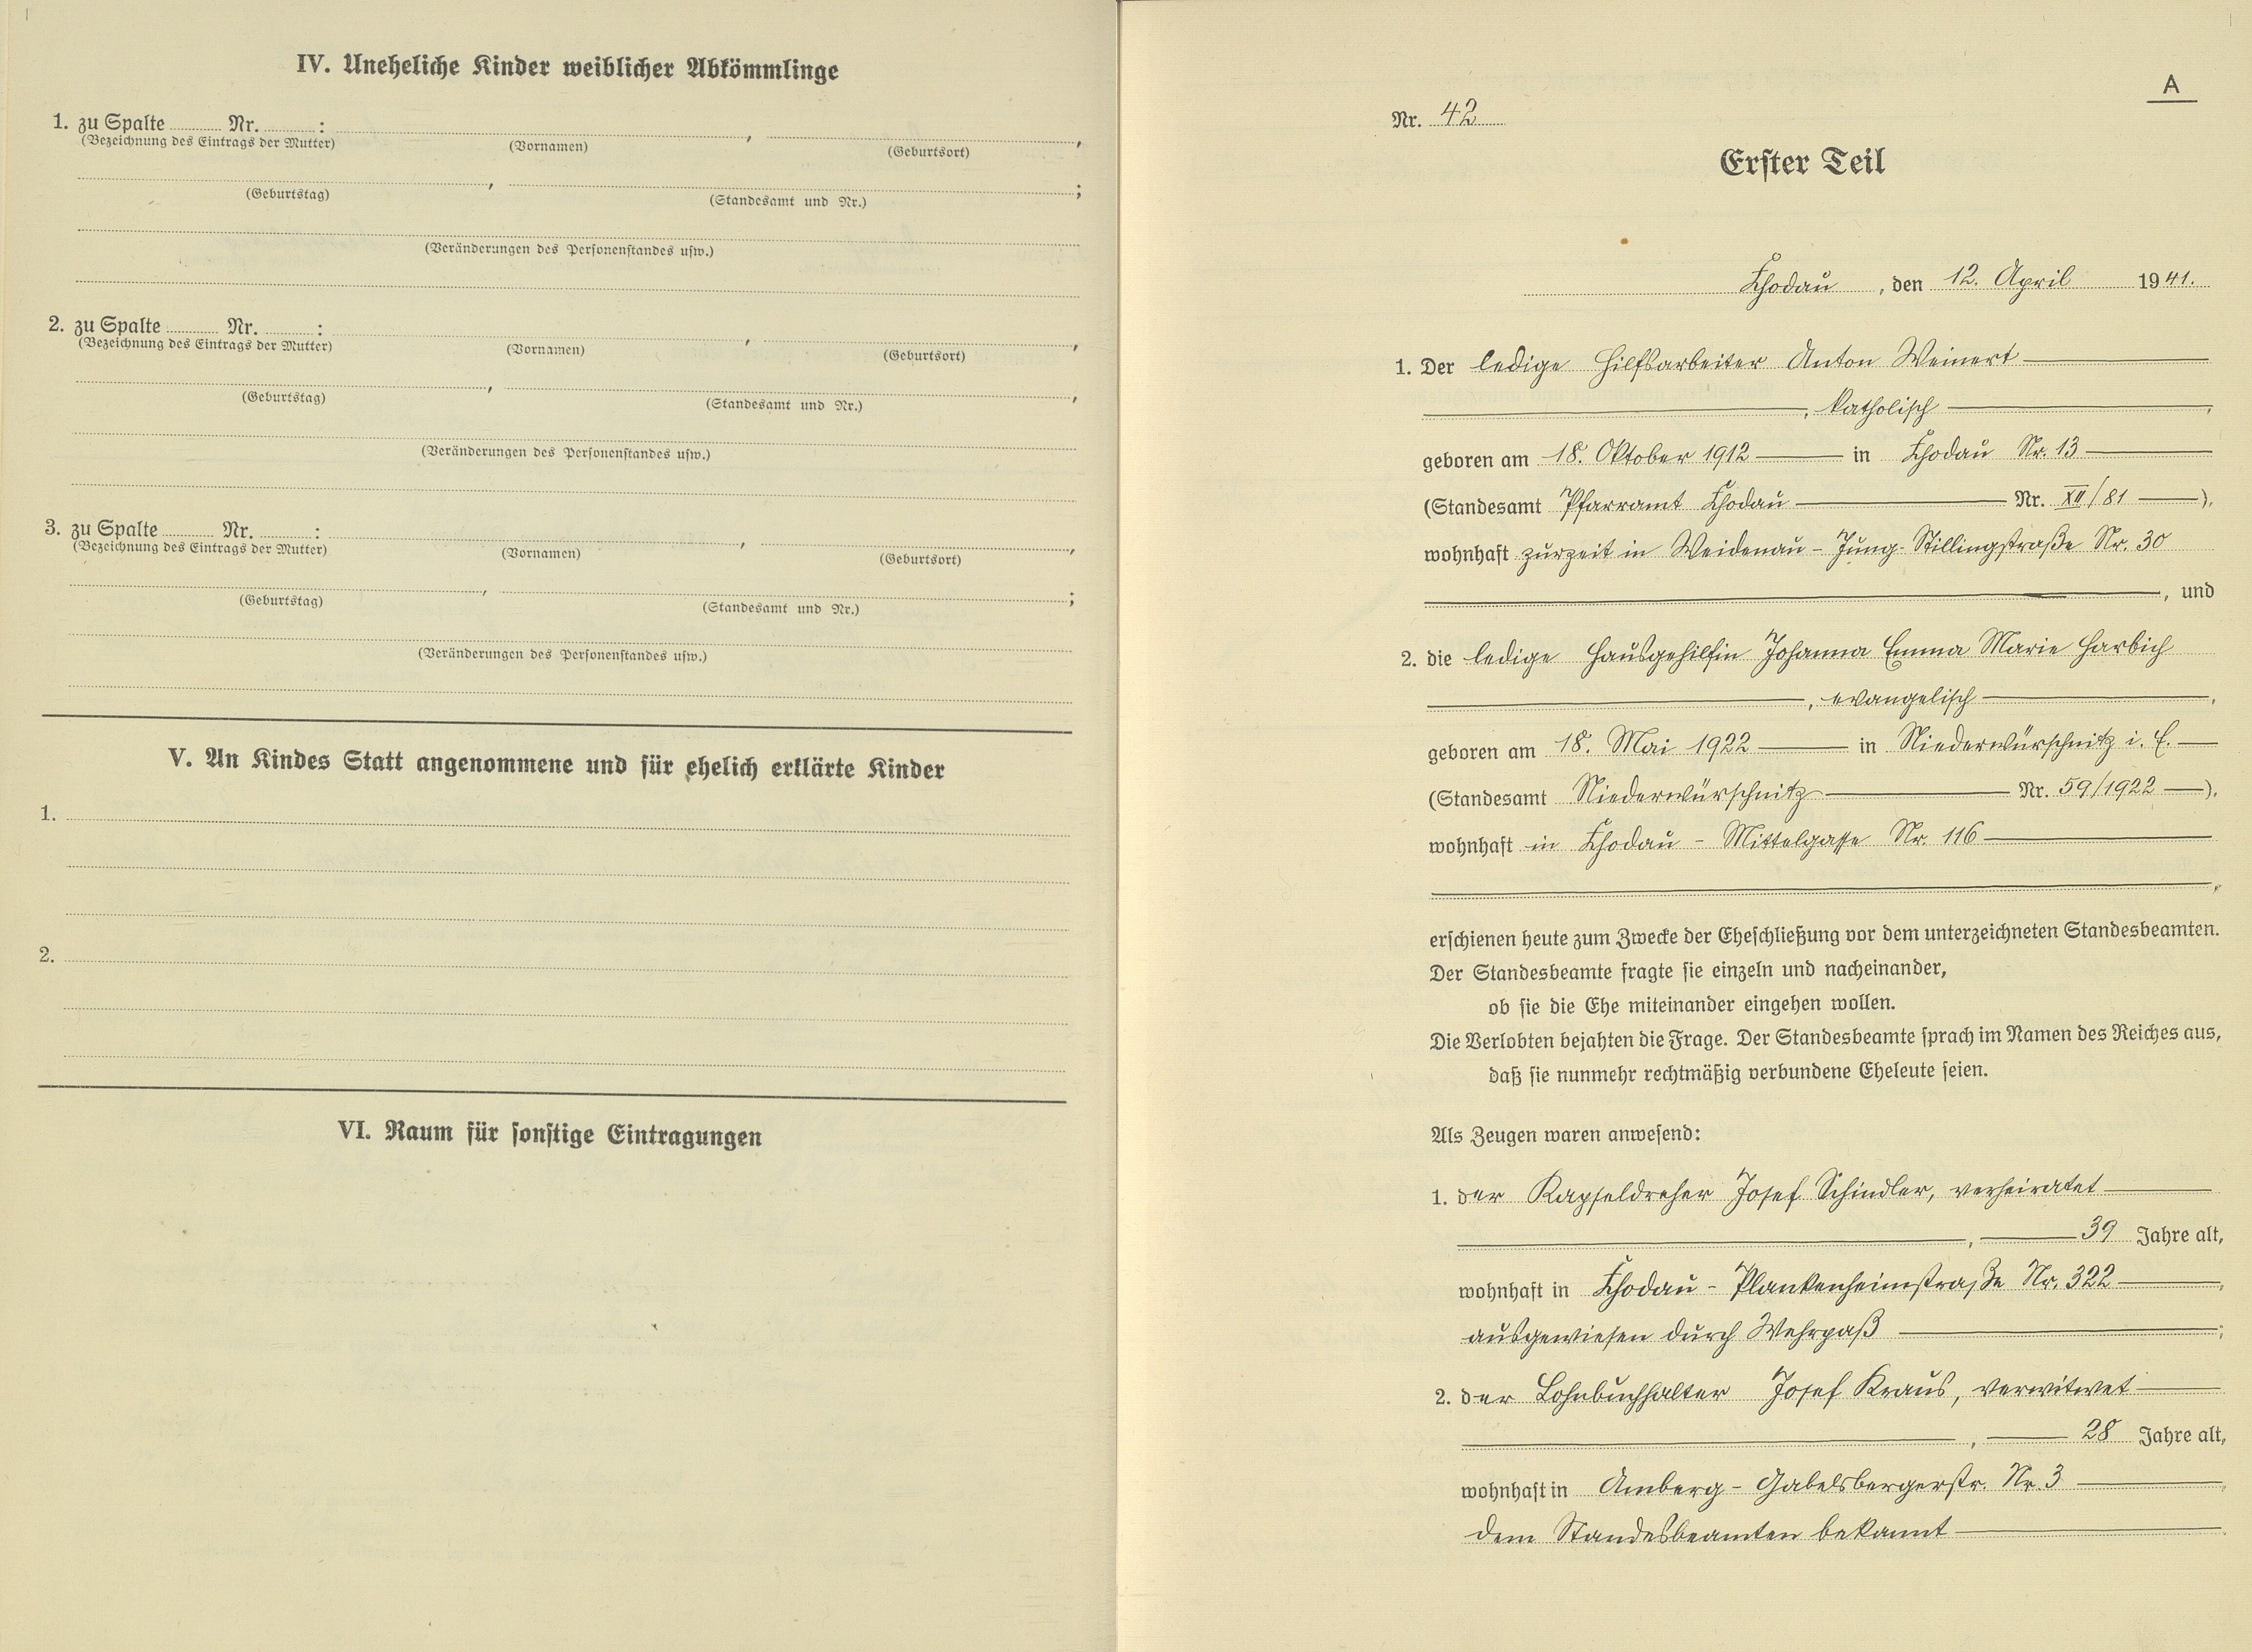 IV. Uneheliche Kinder weiblicher Abkömmlinge
1. zu Spalte Nr. : , ,
(Bezeichnung des Eintrags der Mutter) (Vornamen) (Geburtsort)
, ;
(Geburtstag) (Standesamt und Nr.)
(Veränderungen des Personenstandes usw.)
2. zu Spalte Nr. : , ,
(Bezeichnung des Eintrags der Mutter) (Vornamen) (Geburtsort)
, ,
(Geburtstag) (Standesamt und Nr.)
(Veränderungen des Personenstandes usw.)
3. zu Spalte Nr. : , ,
(Bezeichnung des Eintrags der Mutter) (Vornamen) (Geburtsort)
, ;
(Geburtstag) (Standesamt und Nr.)
(Veränderungen des Personenstandes usw.)
V. An Kindes Statt angenommene und für ehelich erklärte Kinder
1.
2.
VI. Raum für sonstige Eintragungen
A
Nr. 42
Erster Teil
Chodau, den 12. April 1941.
1. Der ledige Hilfsarbeiter Anton Weinert
, katholisch ,
geboren am 18. Oktober 1912 in Chodau Nr. 13
(Standesamt Pfarramt Chodau Nr. XII/81 ),
wohnhaft zurzeit in Weidenau - Jung-Stillingstraße Nr. 30
, und
2. die ledige Hausgehilfin Johanna Emma Marie Harbich
, evangelisch ,
geboren am 18. Mai 1922 in Niederwürschnitz i. E.
(Standesamt Niederwürschnitz Nr. 59/1922 ),
wohnhaft in Chodau - Mittelgasse Nr. 116
,
erschienen heute zum Zwecke der Eheschließung vor dem unterzeichneten Standesbeamten.
Der Standesbeamte fragte sie einzeln und nacheinander,
ob sie die Ehe miteinander eingehen wollen.
Die Verlobten bejahten die Frage. Der Standesbeamte sprach im Namen des Reiches aus,
daß sie nunmehr rechtmäßig verbundene Eheleute seien.
Als Zeugen waren anwesend:
1. der Kapseldreher Josef Schindler, verheiratet
, 39 Jahre alt,
wohnhaft in Chodau - Plankenheimstraße Nr. 322 ,
ausgewiesen durch Wehrpaß ;
2. der Lohnbuchhalter Josef Kraus, verwitwet
, 28 Jahre alt,
wohnhaft in Amberg - Gabelsbergerstr. Nr. 3 ,
dem Standesbeamten bekannt .